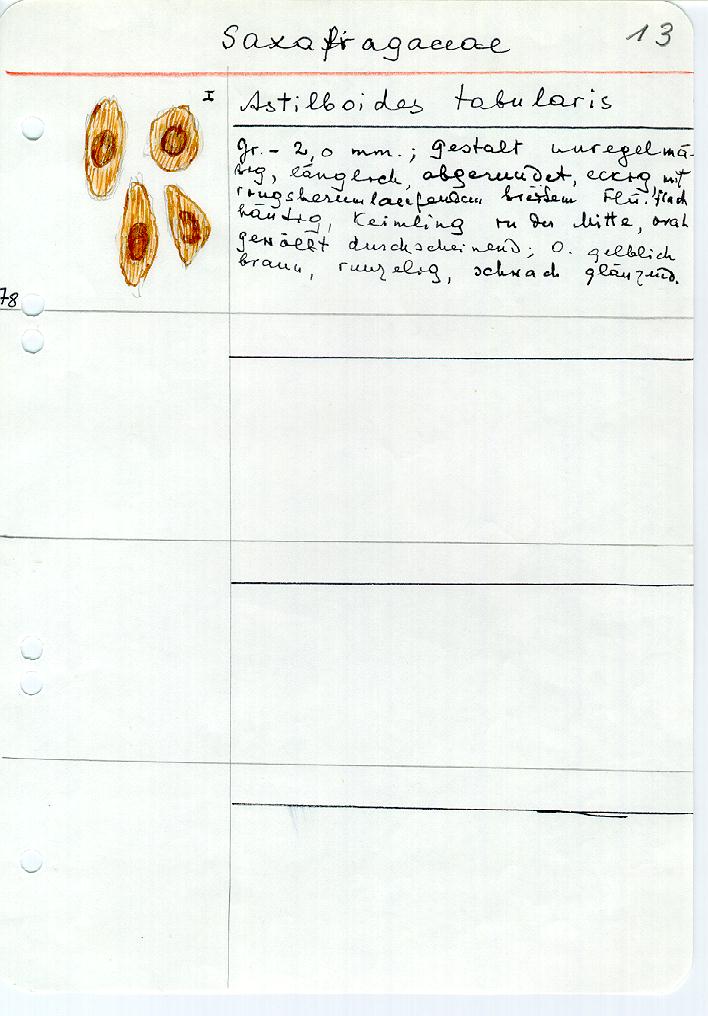 Saxafragaceae
13
I
Astilboides tabularis
Gr. - 2,0 mm.; Gestalt unregelmä-
ßig, länglich, abgerundet, eckig, mit
ringsherumlaufendem breitem Flü. flach
häutig, Keimling in der Mitte, oval
gewölbt durchscheinend; O. gelblich
braun, runzelig, schwach glänzend.
78